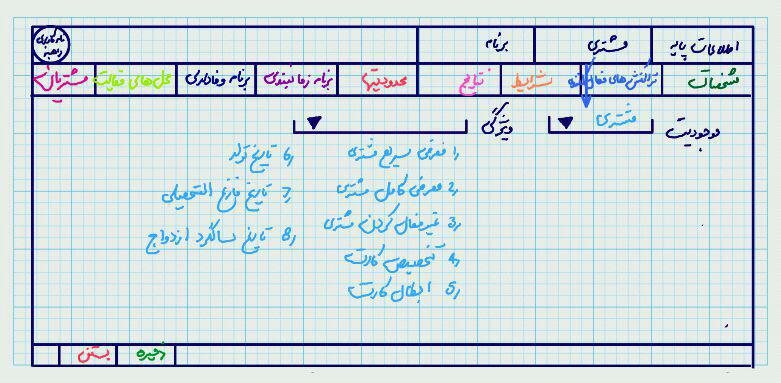 اطلاعات پایه مشتری برنامه نام کاربری
مشخصات تراکنش های فعال کننده شرایط نتایج محدودیتها برنامه زمانبندی برنامه وفاداری محل های فعالیت مشتریان
موجودیت مشتری ویژگی
1, معرفی سریع مشتری
2, معرفی کامل مشتری
3, غیرفعال کردن مشتری
4, تخصیص کارت
5, ابطال کارت
6, تاریخ تولد
7, تاریخ فارغ التحصیلی
8, تاریخ سالگرد ازدواج
ذخیره بستن